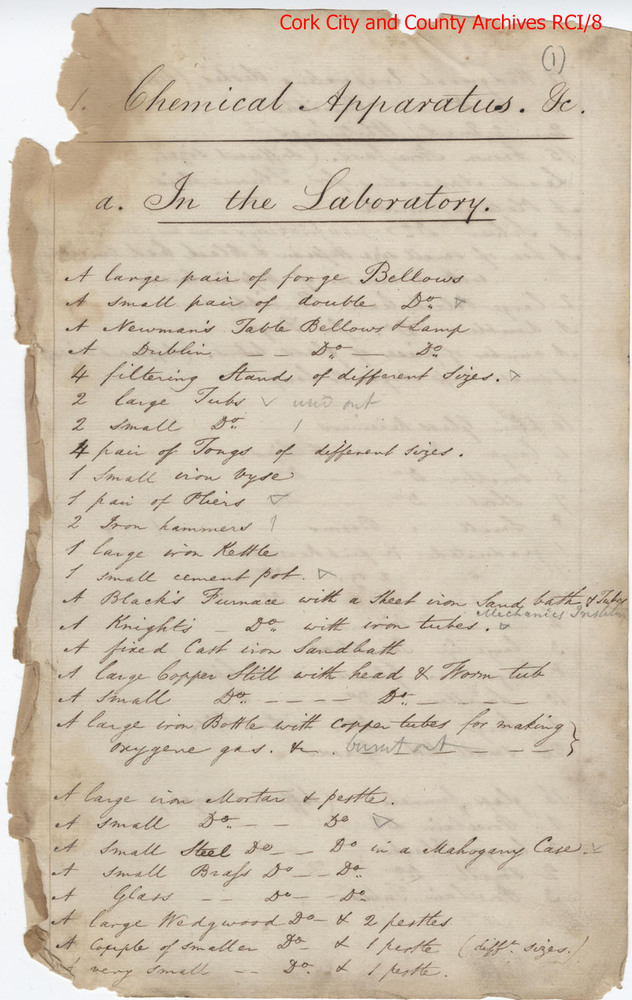 Cork City and County Archives RCI/8
(1)
1. Chemical Apparatus. &c.
a. In the Laboratory.
A large pair of forge Bellows
A small pair of double Do.
A Newman's Table Bellows & Lamp
A Dublin — — Do. — Do.
4 filtering Stands of different Sizes.
2 large Tubs used out
2 small Do.
4 pair of Tongs of different sizes.
1 Small iron Vyse
1 pair of Pliers
2 Iron hammers
1 large iron Kettle
1 small cement pot.
A Black's Furnace with a Sheet iron Sand bath & Tubes
A Knight's — Do. with iron tubes. Mechanics Institu
A fixed Cast iron Sandbath
A large Copper Still with head & Worm tub
A small Do. — — — — Do. — — — —
A large iron Bottle with copper tubes for making
oxygene gas. &c. burnt out — — —
A large iron Mortar & pestle.
A small Do. — — Do
A small Steel Do — — Do in a Mahogany Case.
A small Brass Do — — Do.
A Glass — — Do — Do.
A large Wedgwood Do — & 2 pestles
A Couple of smaller Do — & 1 pestle (difft. sizes.)
A very small — — Do. & 1 pestle.